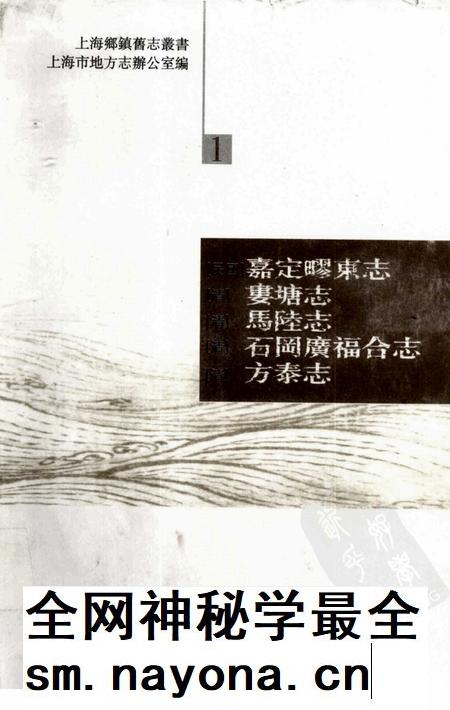 上海鄉鎮舊志叢書
上海市地方志辦公室編
1
嘉定疁東志
婁塘志
馬陸志
石岡廣福合志
方泰志
全网神秘学最全
sm.nayona.cn